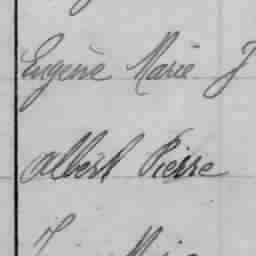 Eugène Marie J
Albert Pierre